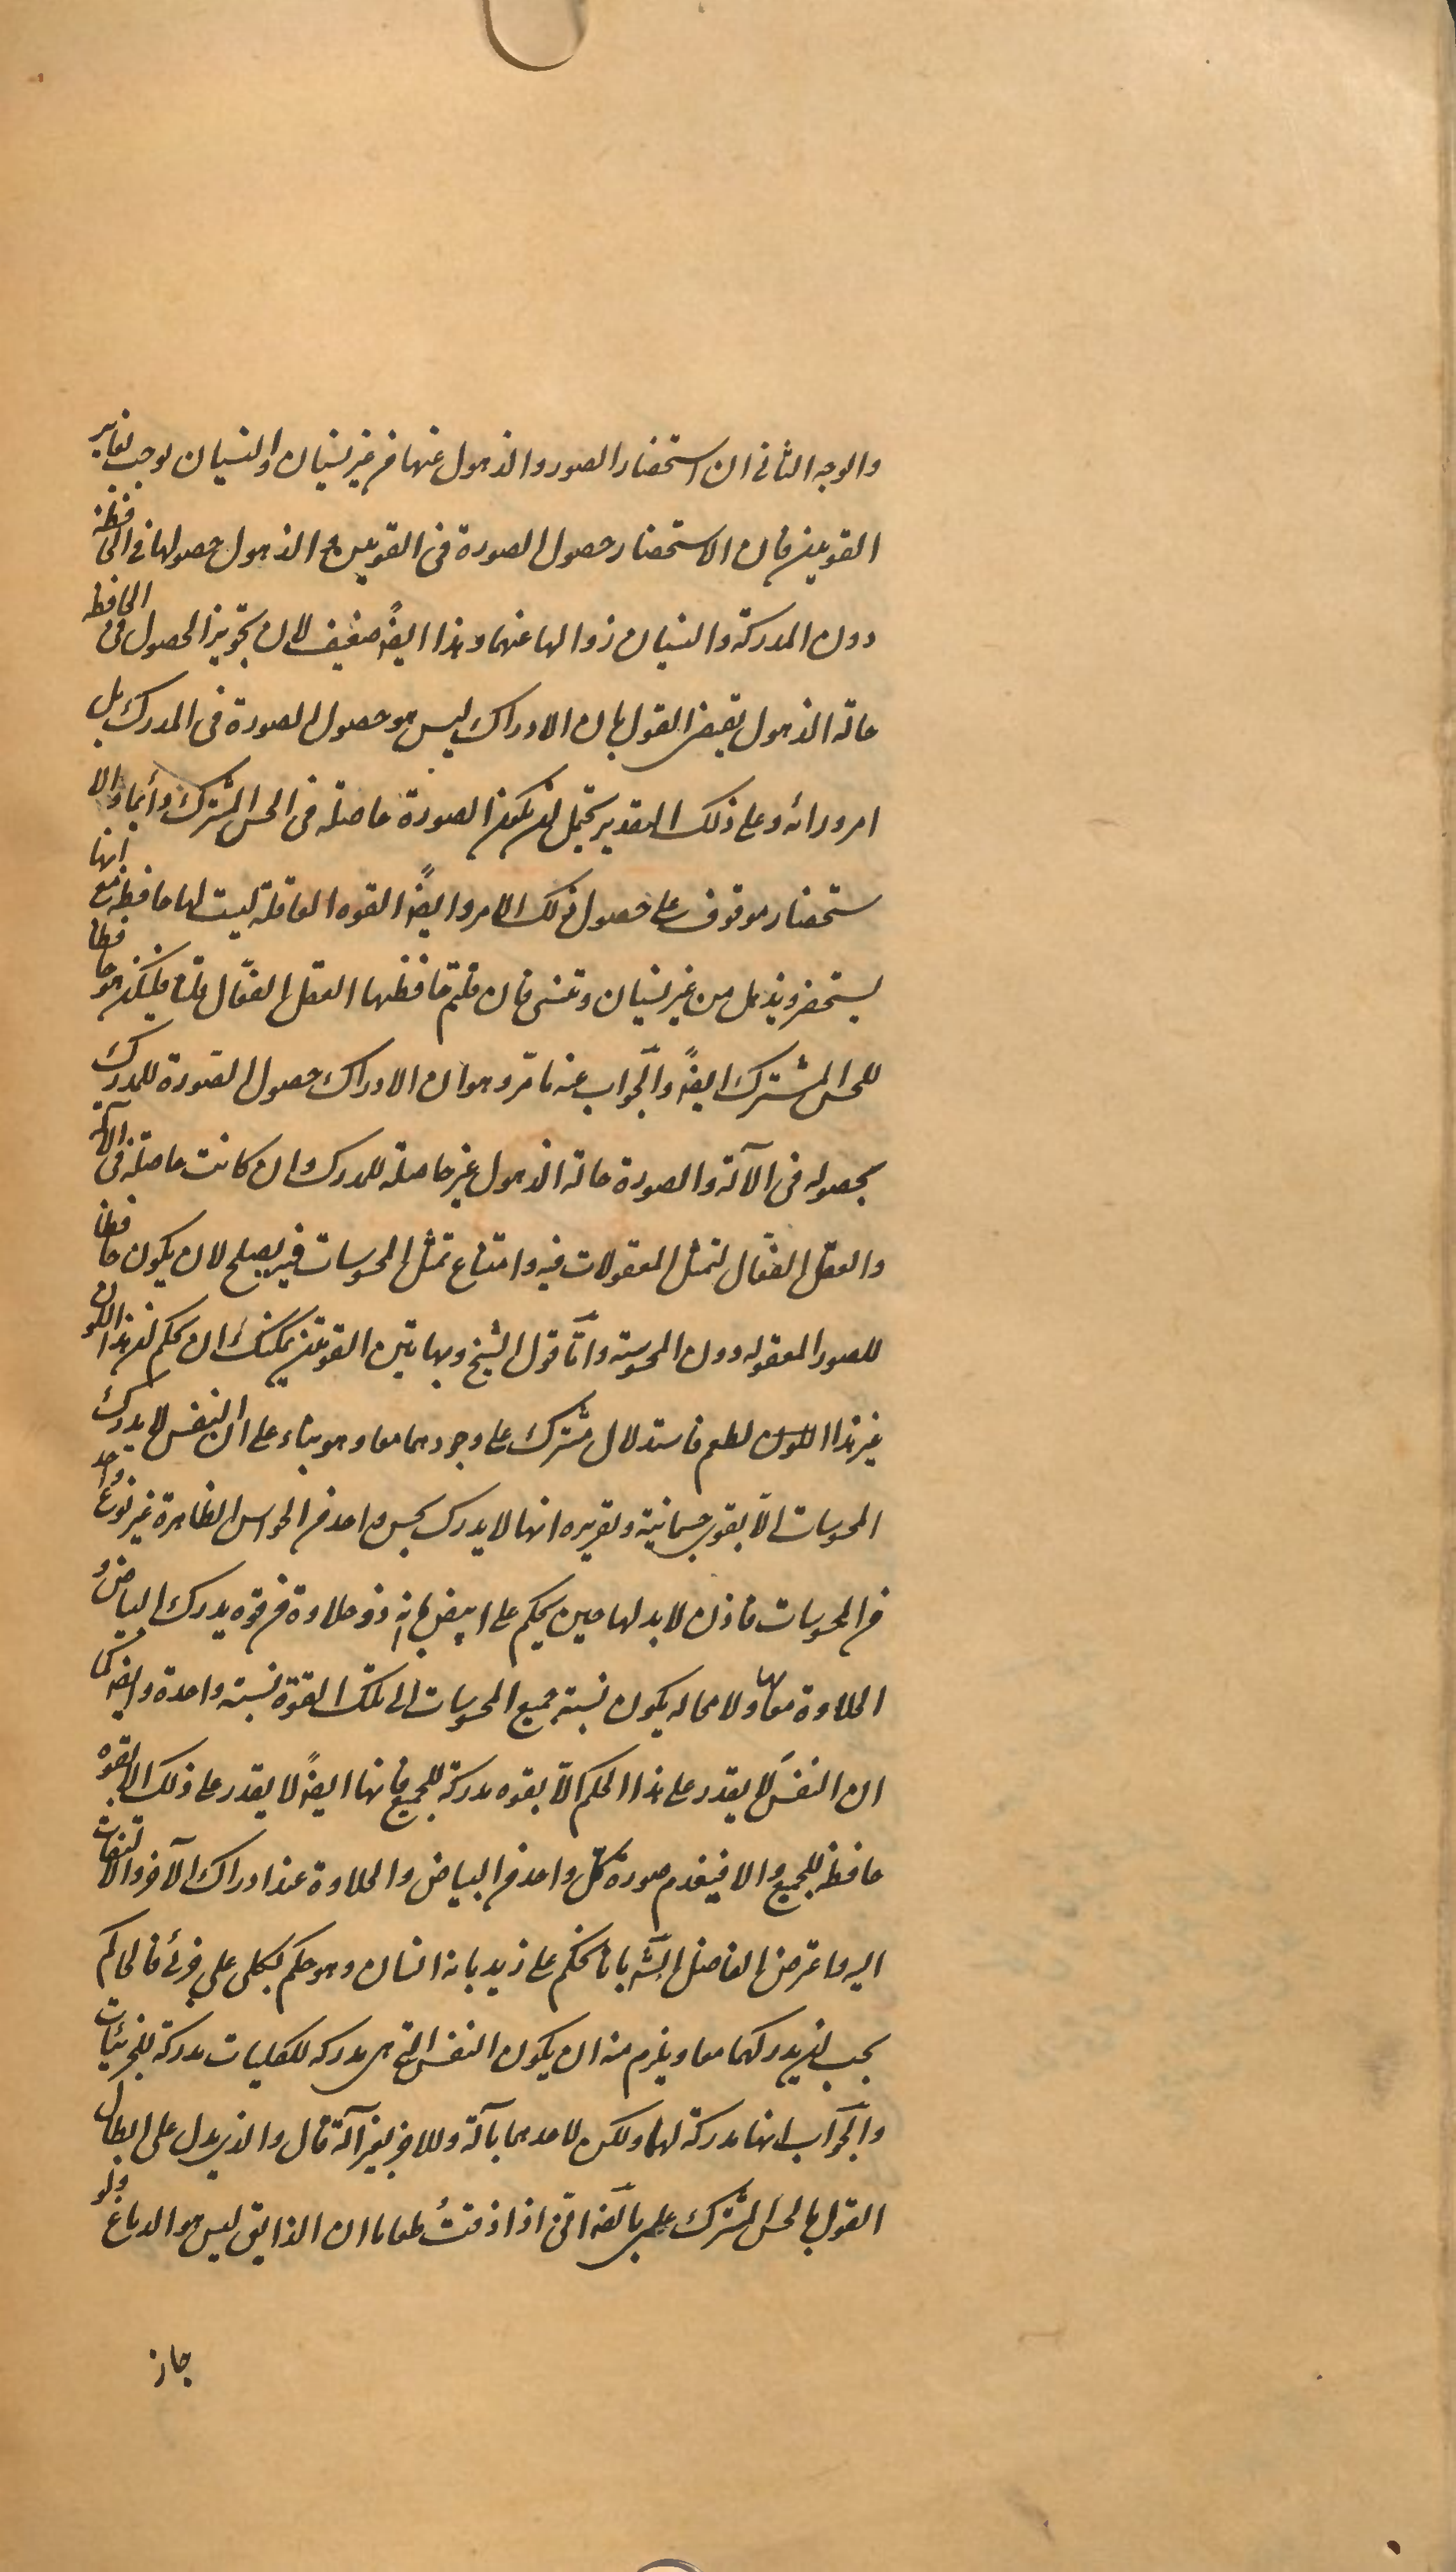 والوجه الثانی ان استحضار الصور والذهول عنها من غیر نسیان والنسیان یوجب تغایر
القوتین فان الاستحضار حصول الصورة فی القوتین والذهول حصولها فی الحافظة
دون المدرکة والنسیان زوالها عنهما وهذا ایضً ضعیف لان تجویز الحصول فی الحافظه
حالة الذهول یقتضی القول بان الادراک لیس هو حصول الصورة فی المدرک بل
امر ورائه وعلی ذلک التقدیر یحتمل ان یکون الصورة حاصلة فی الحس المشترک دائما والا
ستحضار موقوف علی حصول ذلک الامر وایضً القوه العاقلة لیست لها حافظة مع انها
یستحضر ویذهل من غیر نسیان وتنسی فان قلتم حافظها العقل الفعّال قلنا فلیکن هو حافظا
للحس المشترک ایضً والجواب عنه ما مّر وهو ان الادراک حصول الصّورة للمدرک
بحصوله فی الآلة والصورة حالة الذهول غیر حاصلة للمدرک وان کانت حاصلة فی الآلة
والعقل الفعّال لتمثل المعقولات فیه وامتناع تمثل المحسوسات فیه یصلح لان یکون حافظا
للصور المعقوله دون المحسوسة وامّا قول الشیخ وبهاتین القوتین یمکنک ان تحکم ان هذا اللون
غیر هذا اللون لطعم فاستدلال مشترک علی وجودهما معا وهو بناء علی ان النفس لا یدرک
المحسوسات الّا بقوی جسمانیة وتقریره انها لا یدرک بحس واحد من الحواس الظاهرة غیر نوع واحد
من المحسوسات فاذن لا بد لها حین یحکم علی ابیض بانه ذو حلاوة من قوه یدرک البیاض و
الحلاوة معا بها ولا محاله یکون نسبة جمیع المحسوسات الی تلک القوة نسبته واحدة وایضً کما
ان النفسَ لا یقدر علی هذا الحکم الّا بقوه مدرکة للجمیع فانها ایضً لا یقدر علی ذلک الا بقوه
حافظة للجمیع والا فینعدم صورة کلّ واحد من البیاض والحلاوة عند ادراک الآخر والالتفات
الیه واعترض الفاضل الشّ بانا نحکم علی زید بانه انسان وهو حکم بکلی علی جزئی فالحاکم
یجب ان یدرکهما معا ویلزم منه ان یکون النفس التی هی مدرکه للکلیات مدرکة للجزئیات
والجواب انها مدرکة لهما ولکن لاحدهما بآلة وللاخر بغیر آلة قال والذی یدل علی ابطال
القول بالحس المشترک علمی بالضّ انّی اذا ذقتُ طعاما ان الذایق لیس هو الدماغ ولو
جاز